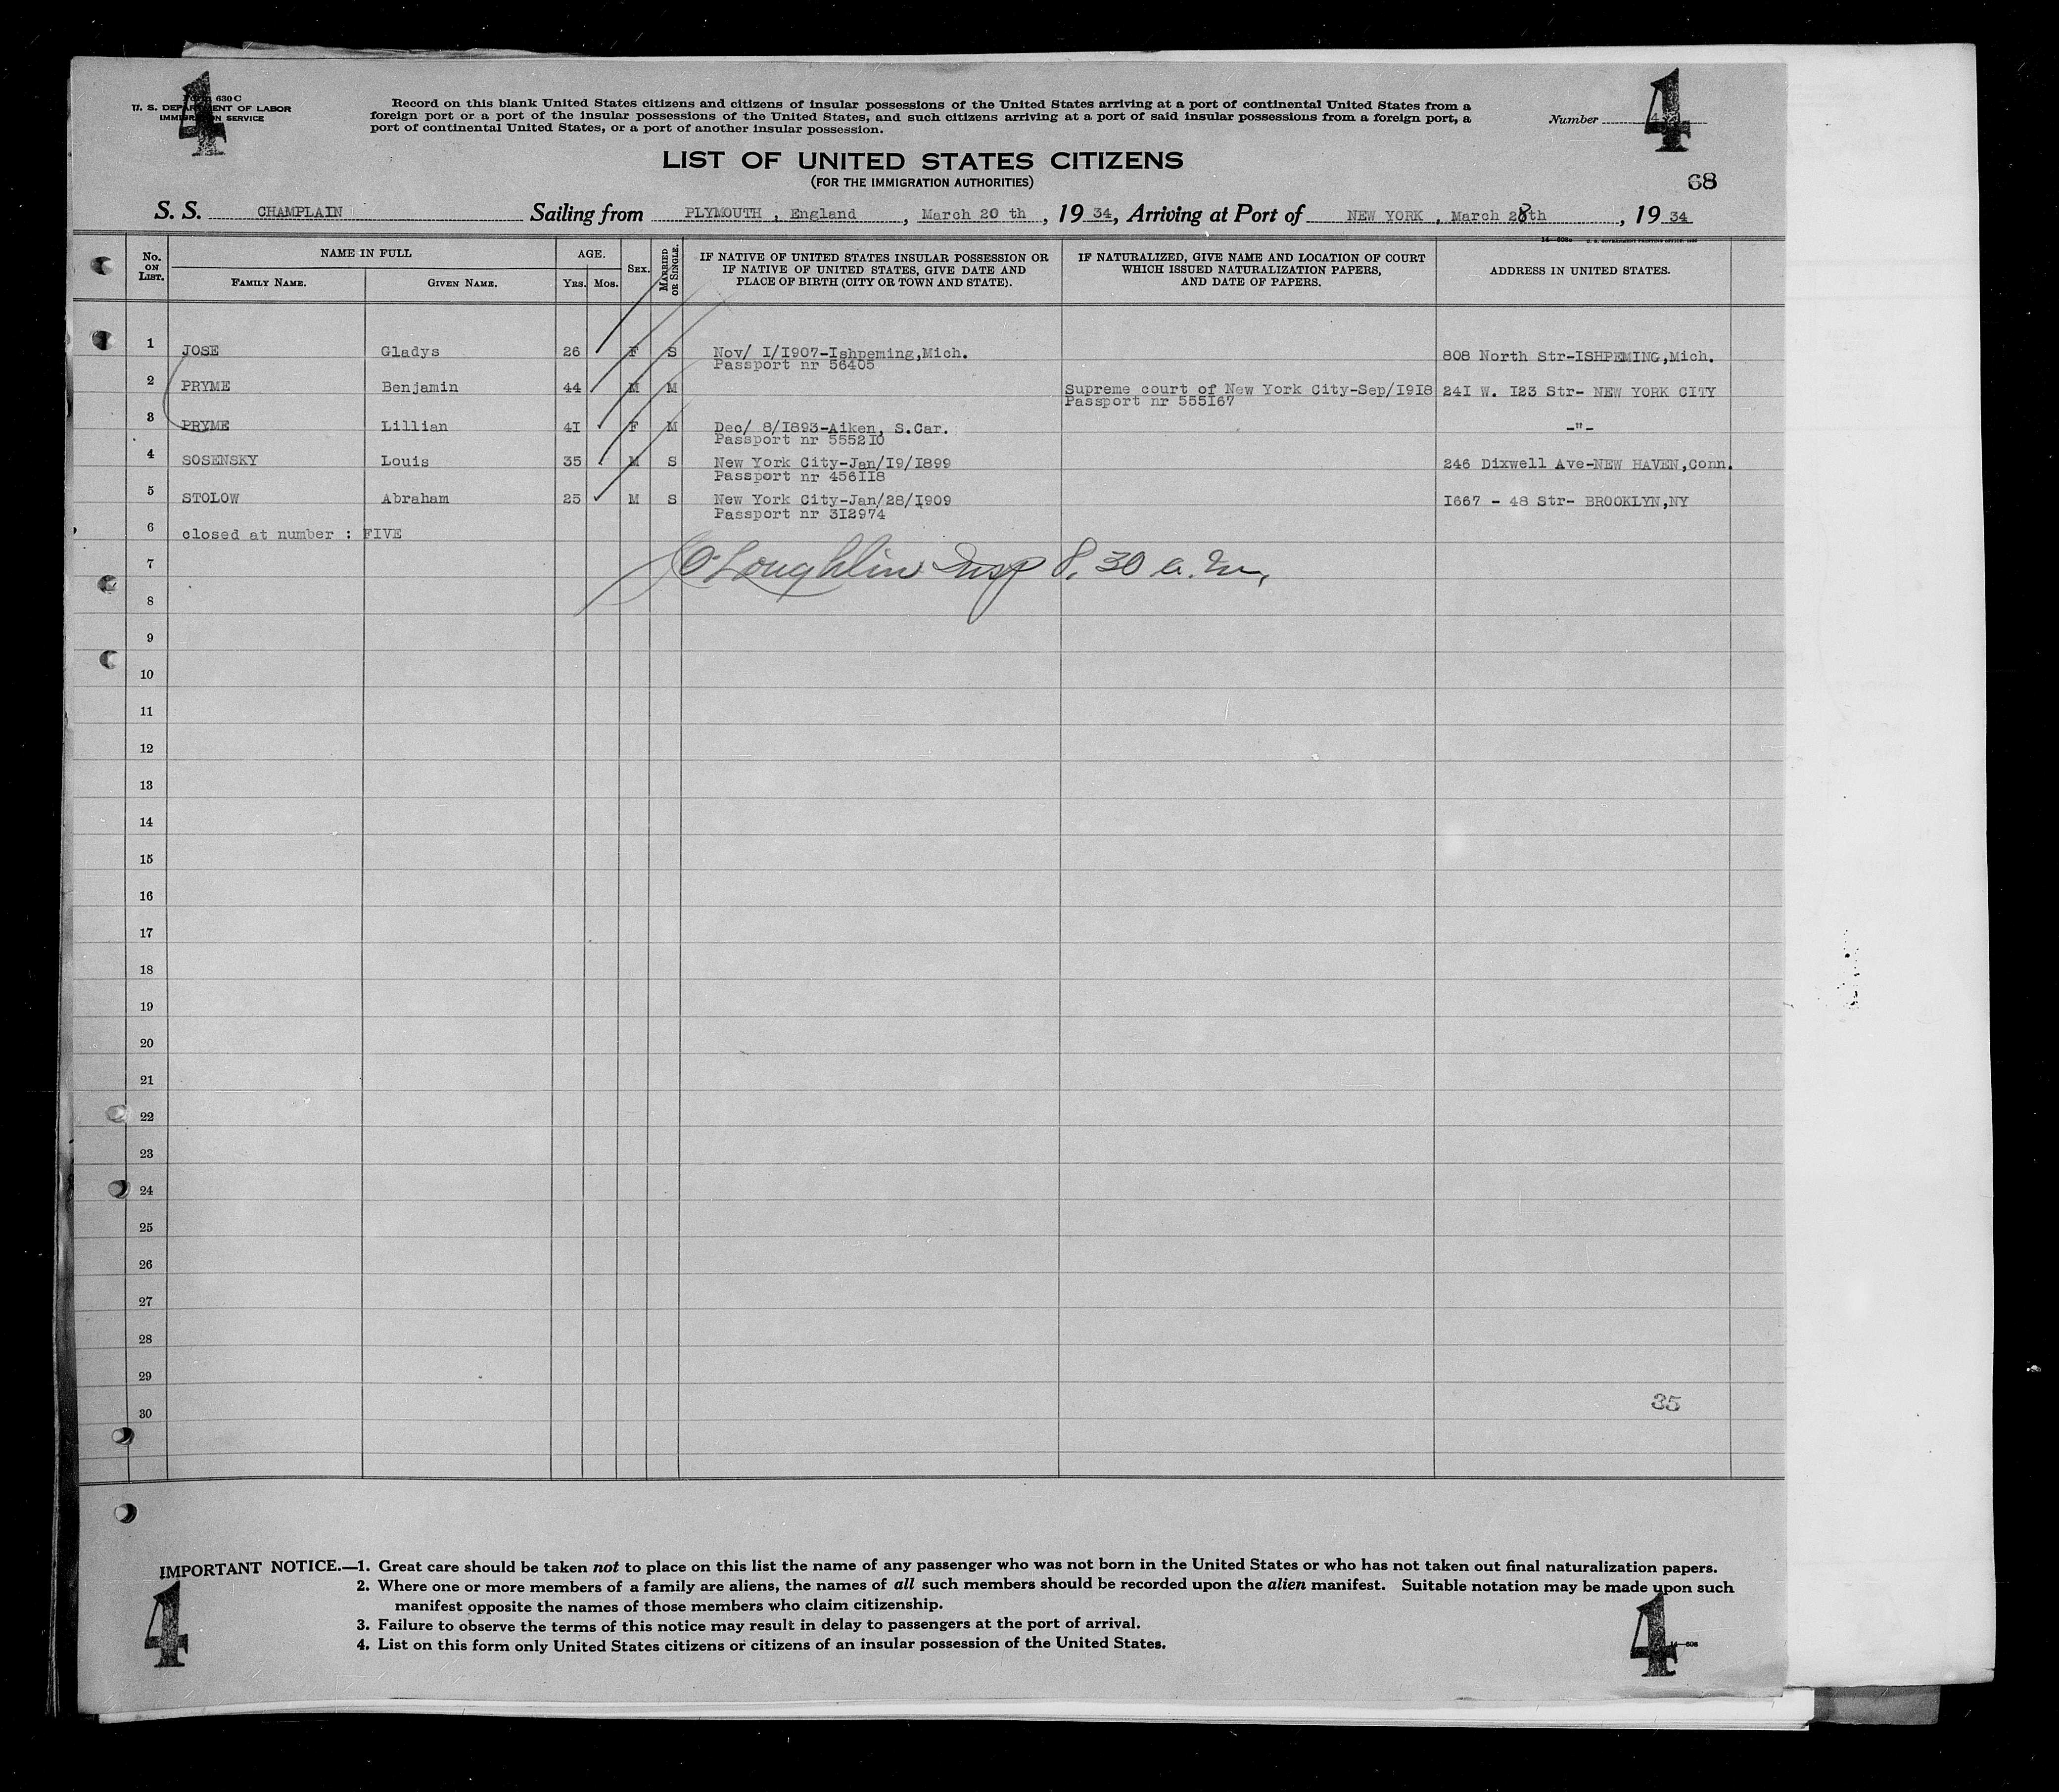 4
Form 630 C
U. S. DEPARTMENT OF LABOR
IMMIGRATION SERVICE
Record on this blank United States citizens and citizens of insular possessions of the United States arriving at a port of continental United States from a
foreign port or a port of the insular possessions of the United States, and such citizens arriving at a port of said insular possessions from a foreign port, a
port of continental United States, or a port of another insular possession.
Number 4
LIST OF UNITED STATES CITIZENS
(FOR THE IMMIGRATION AUTHORITIES)
68
S. S. CHAMPLAIN Sailing from PLYMOUTH , England , March 20 th , 19 34, Arriving at Port of NEW YORK , March 28th , 19 34
No. ON LIST.
NAME IN FULL
FAMILY NAME. GIVEN NAME.
AGE.
YRS. MOS.
SEX.
MARRIED OR SINGLE.
IF NATIVE OF UNITED STATES INSULAR POSSESSION OR
IF NATIVE OF UNITED STATES, GIVE DATE AND
PLACE OF BIRTH (CITY OR TOWN AND STATE).
IF NATURALIZED, GIVE NAME AND LOCATION OF COURT
WHICH ISSUED NATURALIZATION PAPERS,
AND DATE OF PAPERS.
ADDRESS IN UNITED STATES.
1 JOSE Gladys 26 F S Nov/ I/I907-Ishpeming,Mich. 808 North Str-ISHPEMING,Mich.
Passport nr 56405
2 PRYME Benjamin 44 M M Supreme court of New York City-Sep/I9I8 24I W. I23 Str- NEW YORK CITY
Passport nr 555I67
3 PRYME Lillian 4I F M Dec/ 8/I893-Aiken, S.Car. -"-
Passport nr 5552I0
4 SOSENSKY Louis 35 M S New York City-Jan/I9/I899 246 Dixwell Ave-NEW HAVEN,Conn.
Passport nr 456II8
5 STOLOW Abraham 25 M S New York City-Jan/28/I909 I667 - 48 Str- BROOKLYN,NY
Passport nr 3I2974
6 closed at number : FIVE
7 O'Loughlin Insp 8.30 a.m.
8
9
10
11
12
13
14
15
16
17
18
19
20
21
22
23
24
25
26
27
28
29
30
35
IMPORTANT NOTICE.—1. Great care should be taken not to place on this list the name of any passenger who was not born in the United States or who has not taken out final naturalization papers.
2. Where one or more members of a family are aliens, the names of all such members should be recorded upon the alien manifest. Suitable notation may be made upon such
manifest opposite the names of those members who claim citizenship.
3. Failure to observe the terms of this notice may result in delay to passengers at the port of arrival.
4. List on this form only United States citizens or citizens of an insular possession of the United States.
4
4